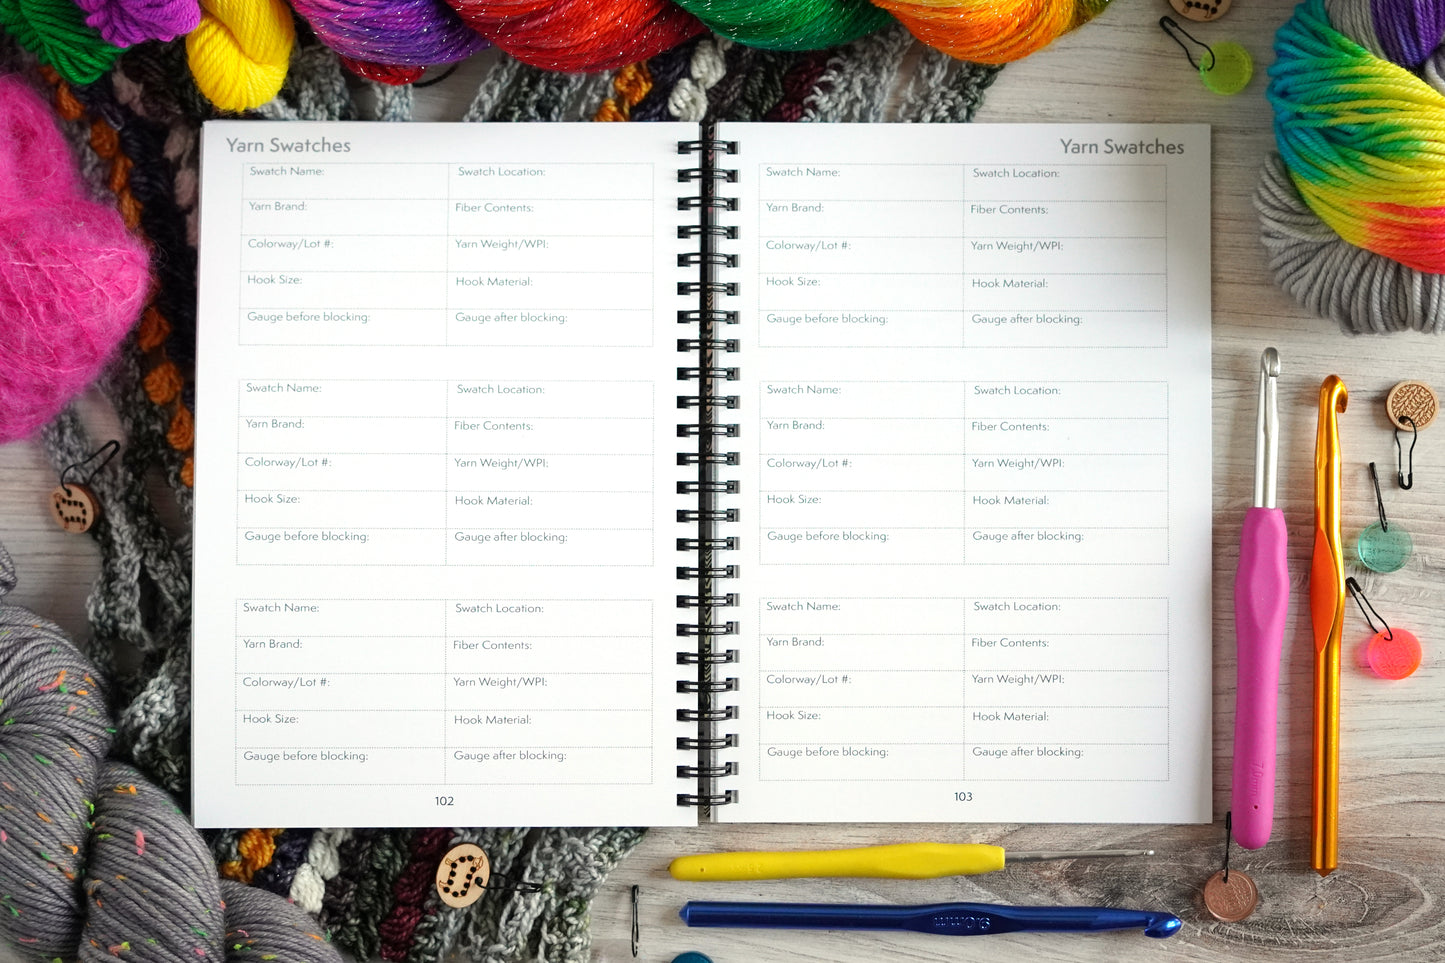 Yarn Swatches
Swatch Name: Swatch Location:
Yarn Brand: Fiber Contents:
Colorway/Lot #: Yarn Weight/WPI:
Hook Size: Hook Material:
Gauge before blocking: Gauge after blocking:
Swatch Name: Swatch Location:
Yarn Brand: Fiber Contents:
Colorway/Lot #: Yarn Weight/WPI:
Hook Size: Hook Material:
Gauge before blocking: Gauge after blocking:
Swatch Name: Swatch Location:
Yarn Brand: Fiber Contents:
Colorway/Lot #: Yarn Weight/WPI:
Hook Size: Hook Material:
Gauge before blocking: Gauge after blocking:
102
Yarn Swatches
Swatch Name: Swatch Location:
Yarn Brand: Fiber Contents:
Colorway/Lot #: Yarn Weight/WPI:
Hook Size: Hook Material:
Gauge before blocking: Gauge after blocking:
Swatch Name: Swatch Location:
Yarn Brand: Fiber Contents:
Colorway/Lot #: Yarn Weight/WPI:
Hook Size: Hook Material:
Gauge before blocking: Gauge after blocking:
Swatch Name: Swatch Location:
Yarn Brand: Fiber Contents:
Colorway/Lot #: Yarn Weight/WPI:
Hook Size: Hook Material:
Gauge before blocking: Gauge after blocking:
103